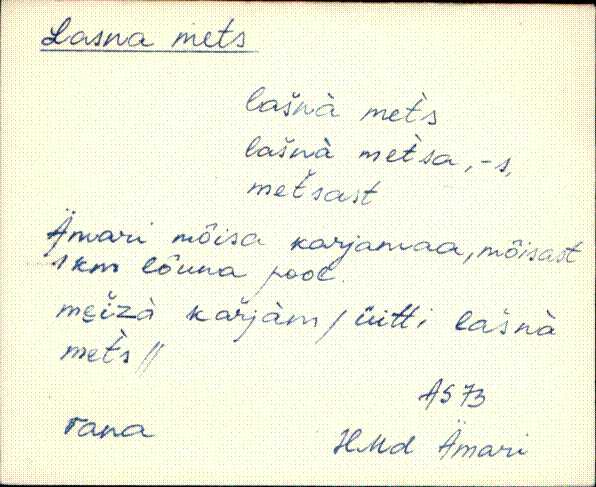 Lasna mets
lašnà met̀s
lašnà met̀sa, -s,
met̀sast
Ämari mõisa karjamaa, mõisast
1 km lõuna pool.
meizà kařjàm / üitti lašnà
met̀s //
AS 73
rana
HMd Ämari